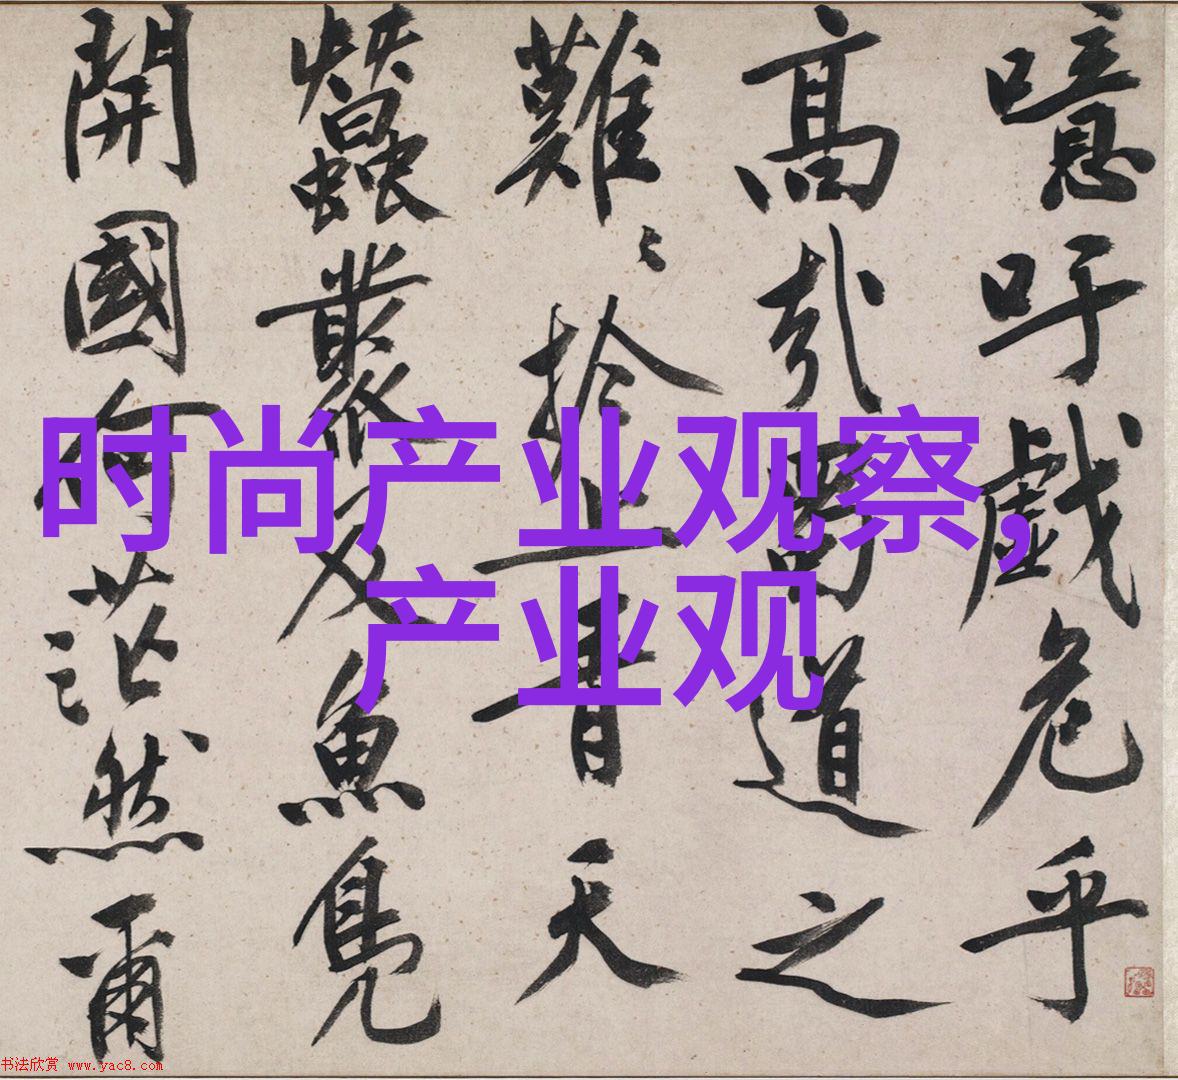 噫吁戲危乎
高哉蜀道之
難〻於上青天
蠶叢及魚鳧
開國何茫然爾
时尚产业观察,
产业观
书法欣赏 www.yac8.com